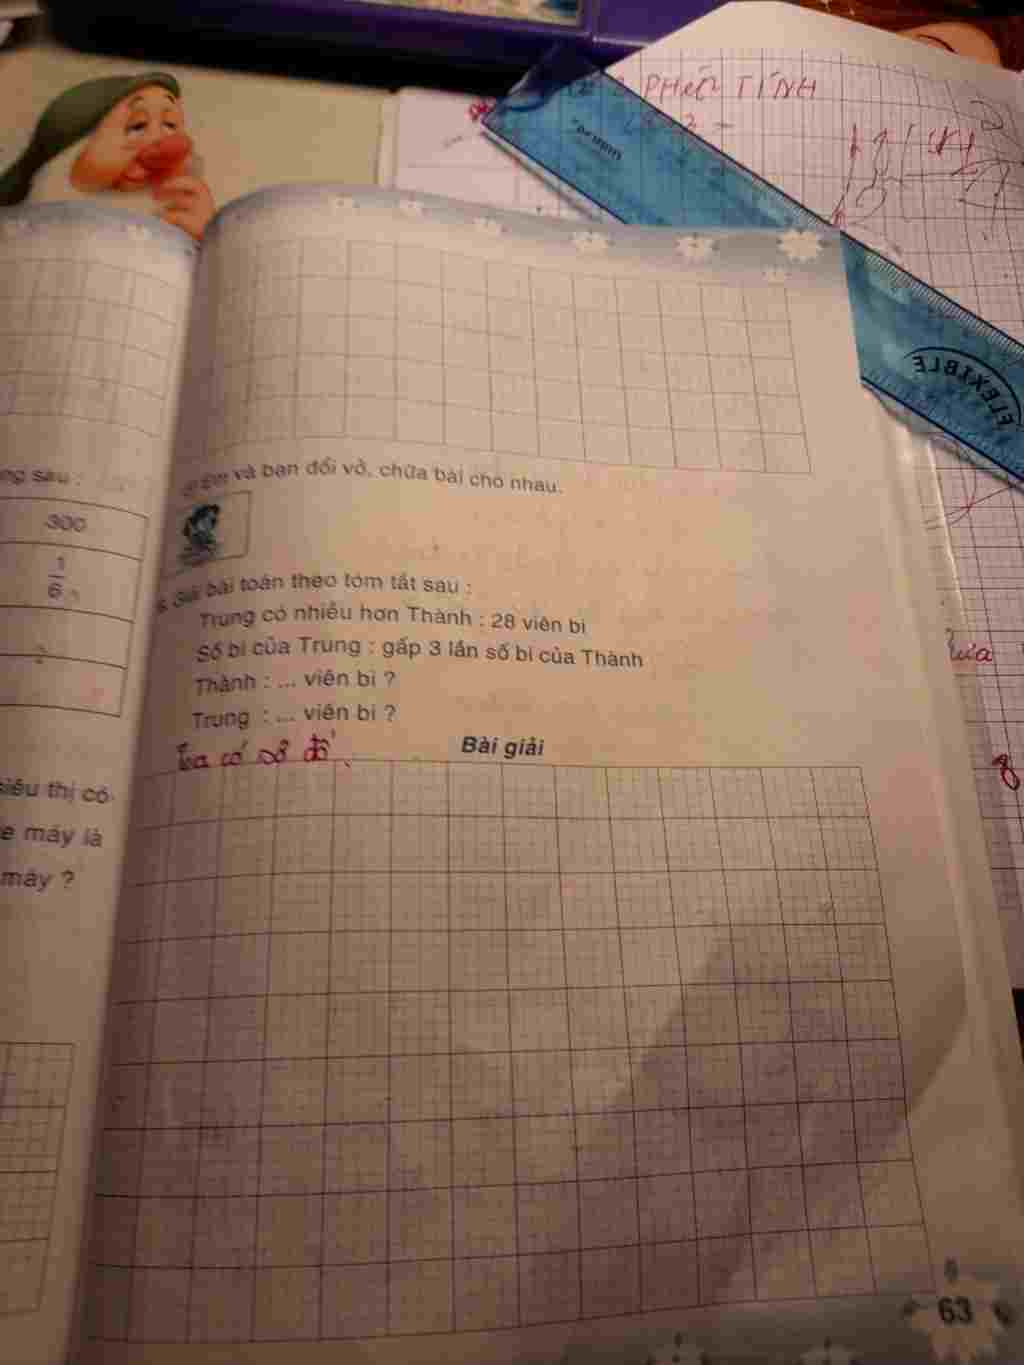 PHÉP TÍNH
FLEXIBLE
và bạn đổi vở, chữa bài cho nhau.
ng sau :
300
1
6
Giải bài toán theo tóm tắt sau :
Trung có nhiều hơn Thành : 28 viên bi
Số bi của Trung : gấp 3 lần số bi của Thành
Thành : ... viên bi ?
Trung : ... viên bi ?
Ta có sơ đồ
Bài giải
siêu thị có
e máy là
máy ?
63